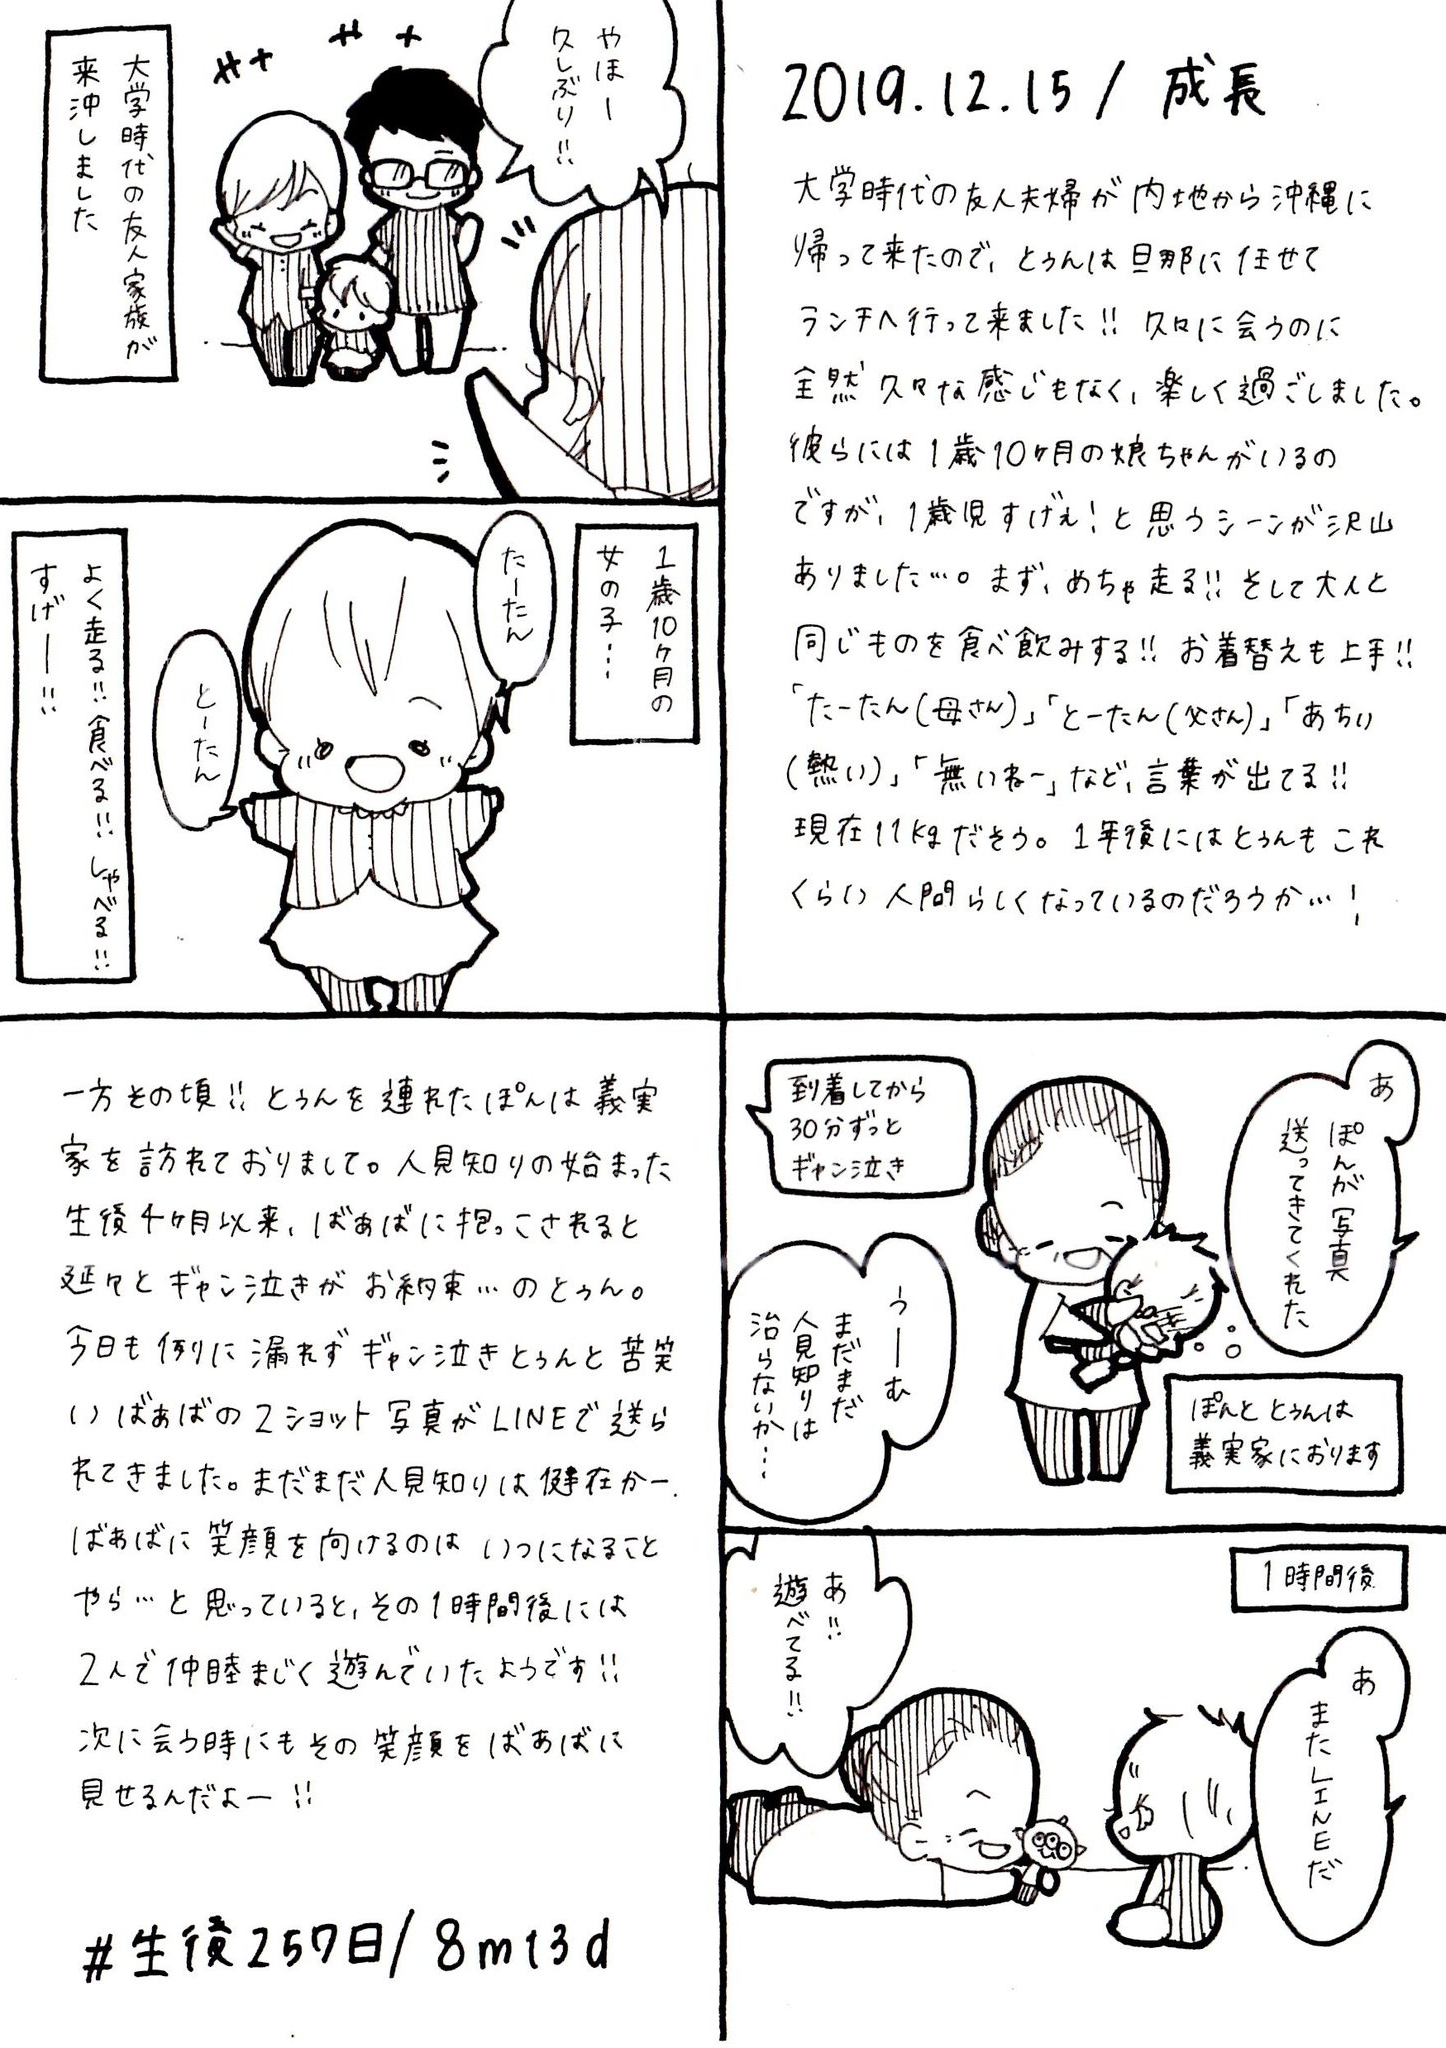 2019.12.15/ 成長
大学時代の友人夫婦が内地から沖縄に
帰って来たので、とぅんは旦那に任せて
ランチへ行って来ました!! 久々に会うのに
全然久々な感じもなく、楽しく過ごしました。
彼らには1歳10ヶ月の娘ちゃんがいるの
ですが、1歳児すげぇ!と思うシーンが沢山
ありました…。まず、めちゃ走る!! そして大人と
同じものを食べ飲みする!! お着替えも上手!!
「たーたん(母さん)」「とーたん(父さん)」「あちい
(熱い)」「無いねー」など、言葉が出てる!!
現在11kgだそう。1年後にはとぅんもこれ
くらい人間らしくなっているのだろうか…!
やほー
久しぶり!!
大学時代の友人家族が
来沖しました
1歳10ヶ月の
女の子…
たーたん
とーたん
よく走る!! 食べる!! しゃべる!!
すげー!!
あ
ぽんが写真
送ってきてくれた
到着してから
30分ずっと
ギャン泣き
ぽんととぅんは
義実家におります
うーむ
まだまだ
人見知りは
治らないか…
1時間後
あ
またLINEだ
あ!!
遊べてる!!
一方その頃!! とぅんを連れたぽんは義実
家を訪れておりまして。人見知りの始まった
生後4ヶ月以来、ばぁばに抱っこされると
延々とギャン泣きがお約束…のとぅん。
今日も例に漏れずギャン泣きとぅんと苦笑
いばぁばの2ショット写真がLINEで送ら
れてきました。まだまだ人見知りは健在かー.
ばぁばに笑顔を向けるのはいつになること
やら…と思っていると、その1時間後には
2人で仲睦まじく遊んでいたようです!!
次に会う時にもその笑顔をばぁばに
見せるんだよー!!
#生後257日/8m13d